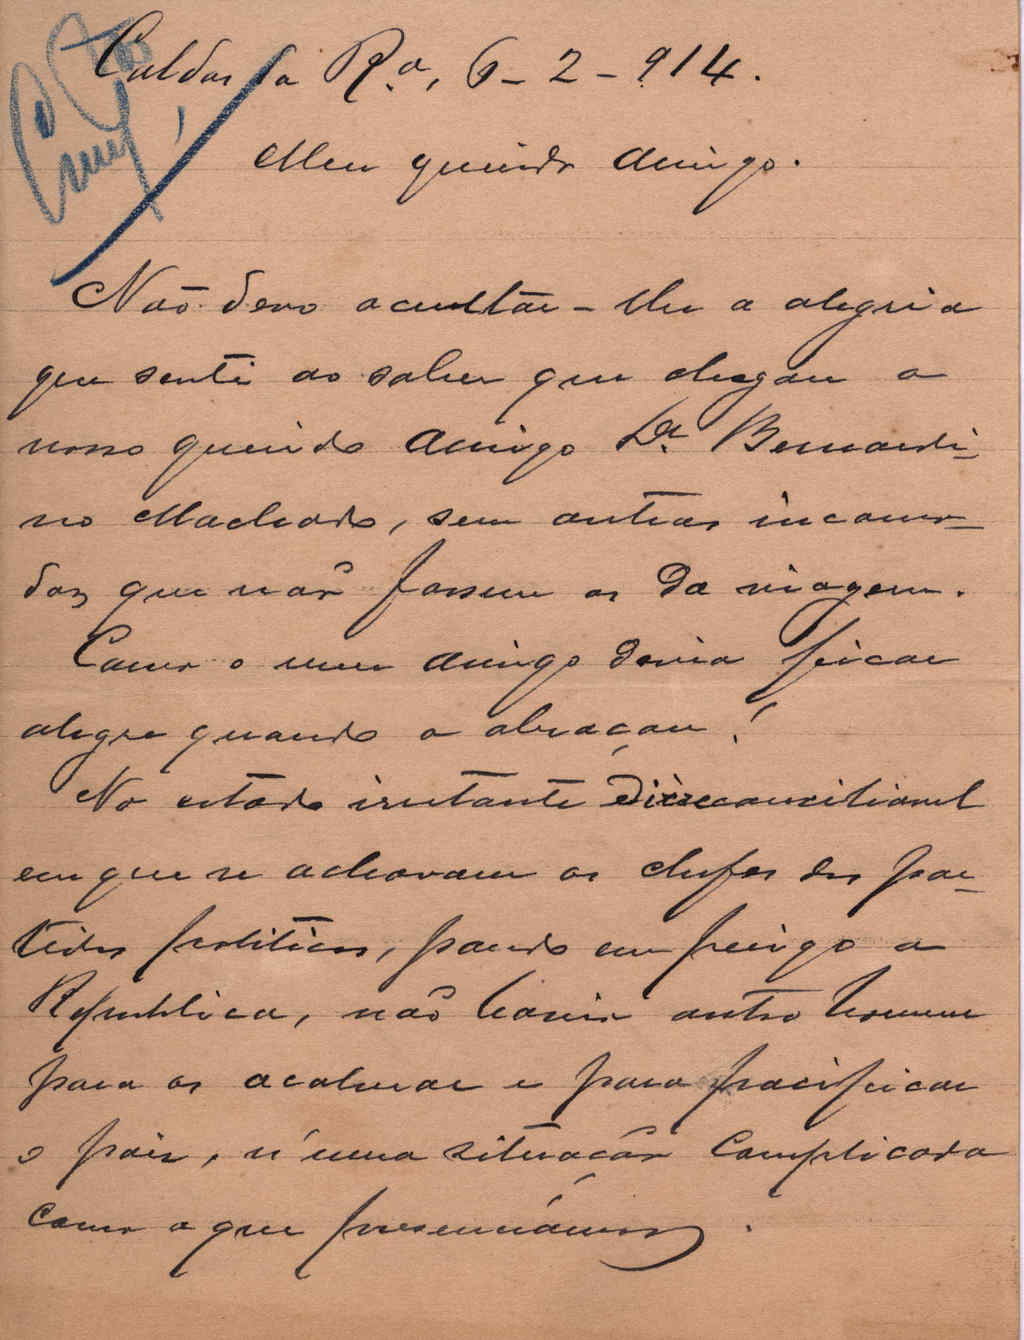 Caldas da R.ª, 6-2-914.
Meu querido Amigo.
Não devo ocultar-lhe a alegria
que senti ao saber que chegou o
nosso querido Amigo Dr. Bernardi-
no Machado, sem outros incomo-
dos que não fossem os da viagem.
Como o meu Amigo devia ficar
alegre quando o abraçou!
No estado irritante
em que se achavam os chefes dos par-
tidos politicos, pondo em perigo a
Republica, não havia outro homem
para os acalmar e para pacificar
o pais, n'uma situação complicada
como a que presenciámos.